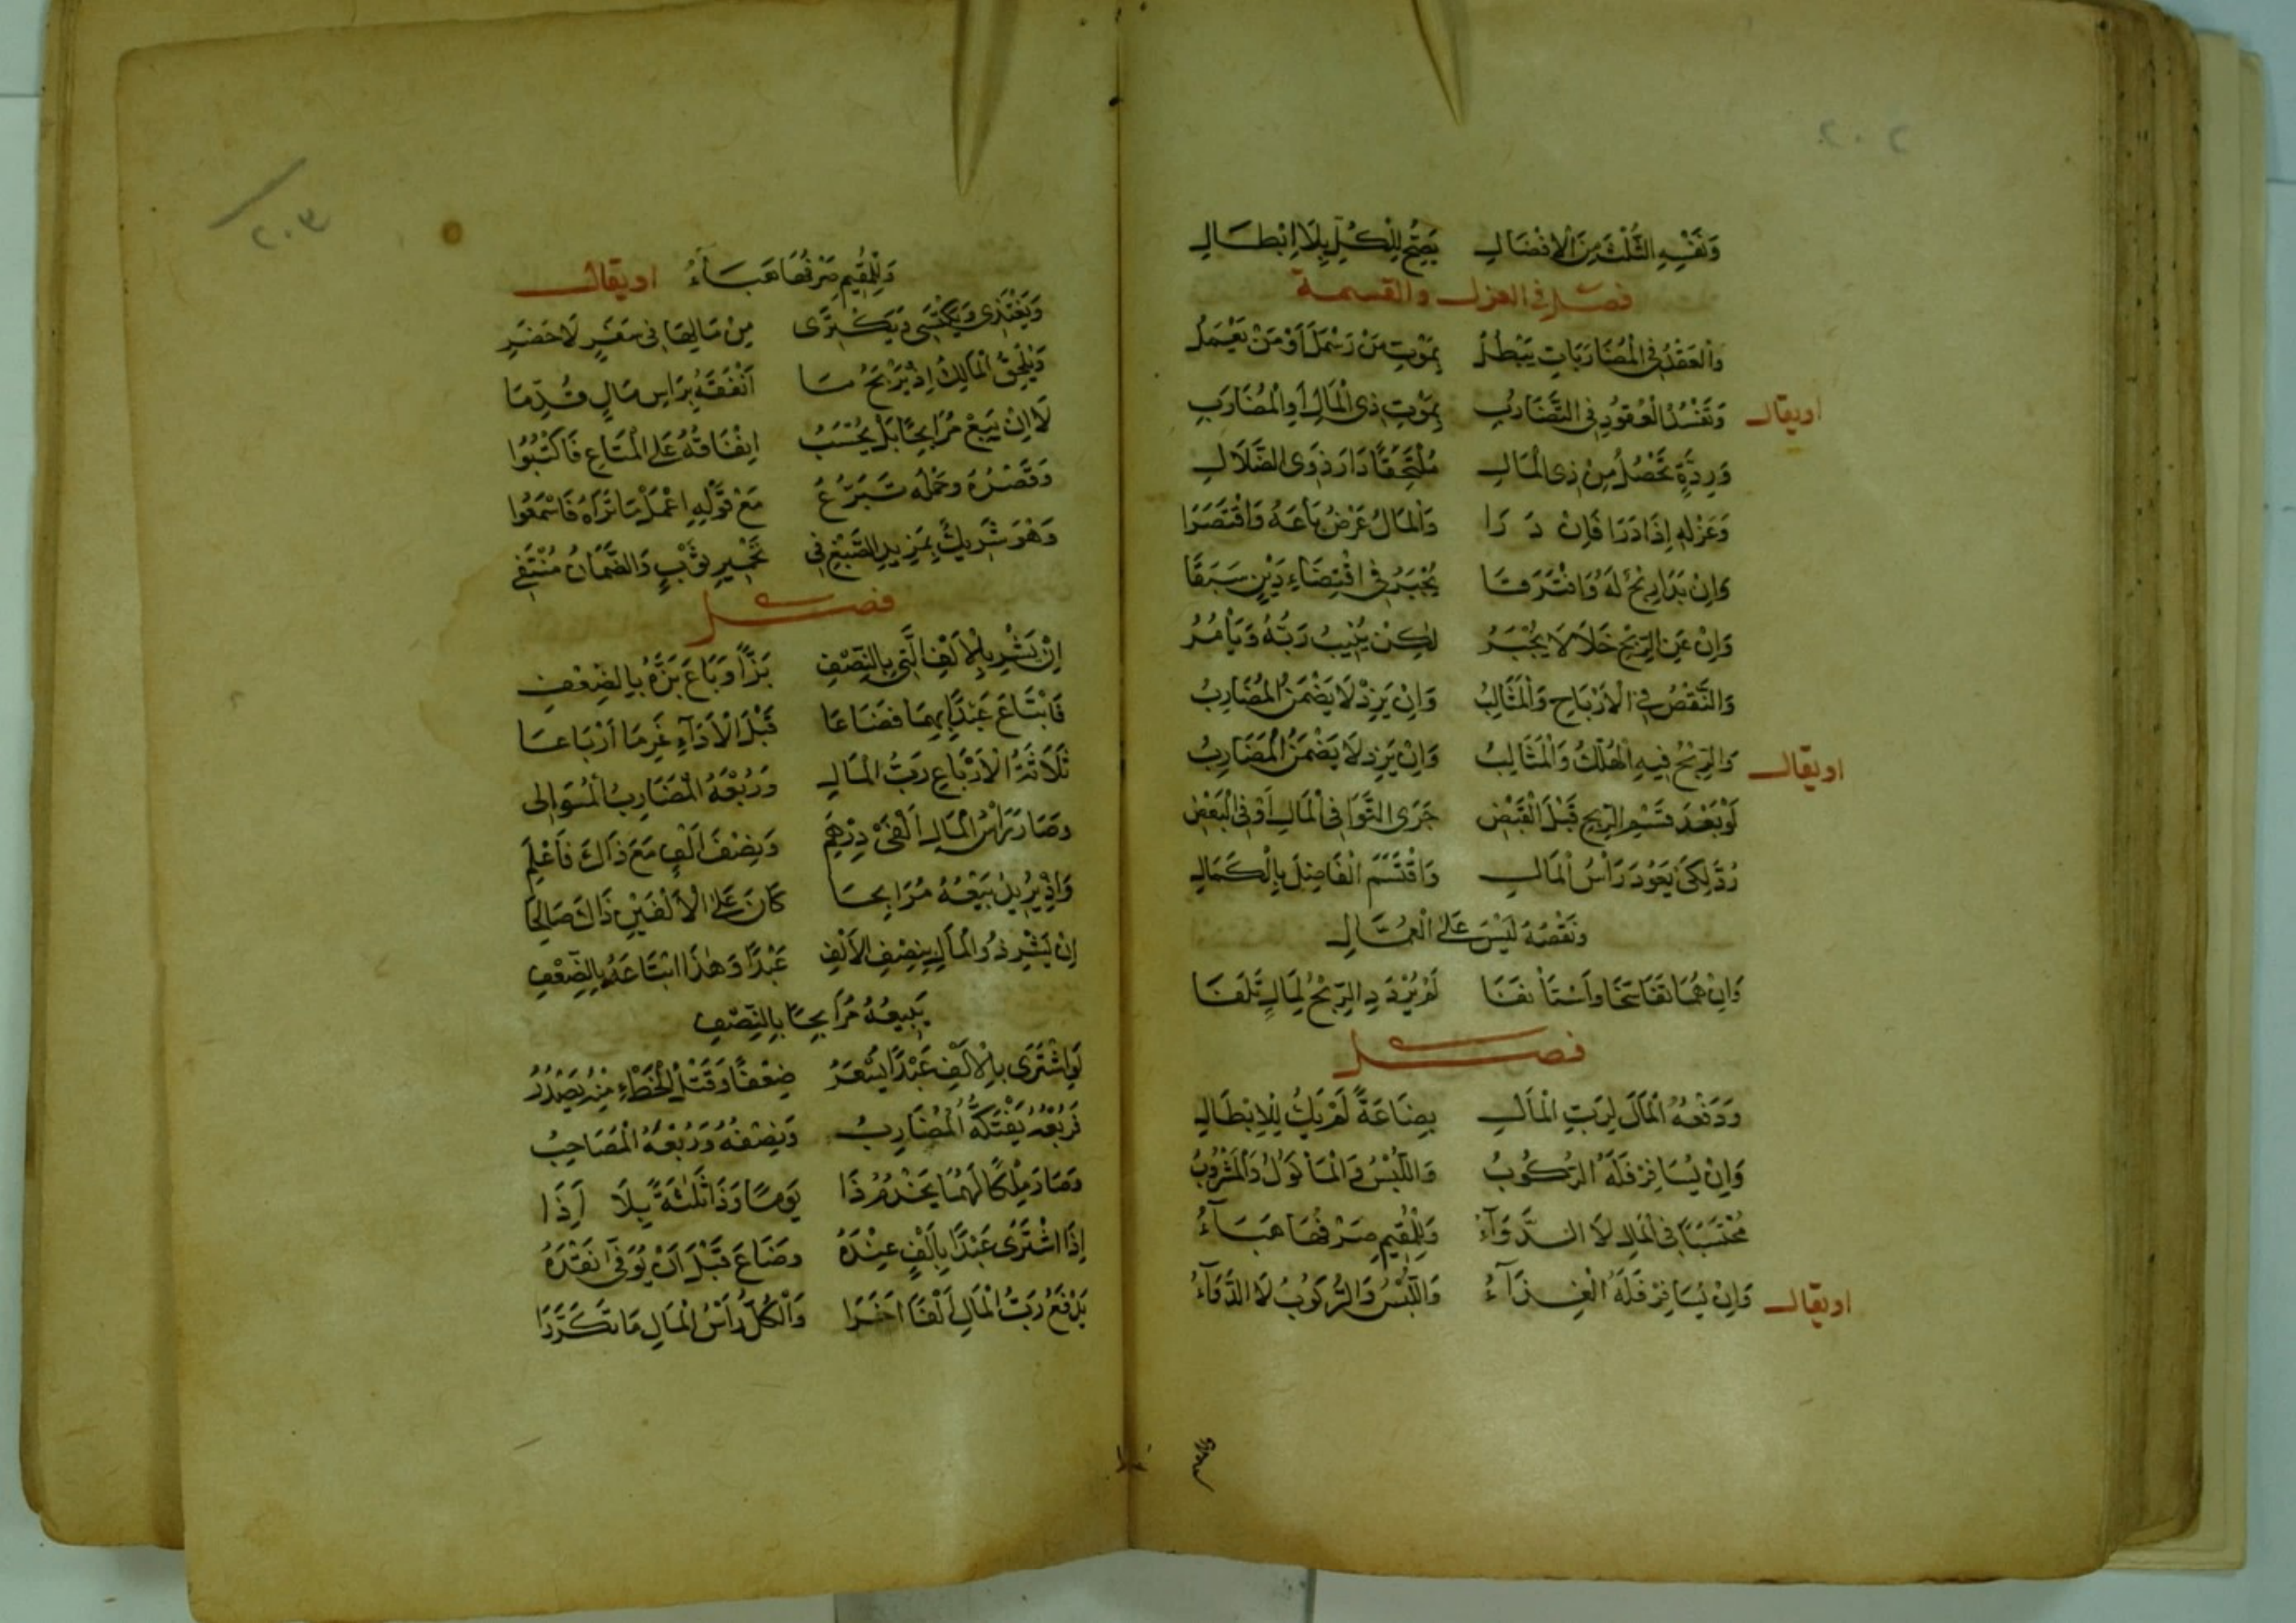 ٢٠٢
وَنَفْيِهِ الثُّلْثَ مِنَ الْاِفْضَالِ يَصِحُّ لِلْكُلِّ بِلَا اِبْطَالِ
فصل في العزل والقسمة
وَالْعَقْدُ فِي الْمُضَارَبَاتِ يَبْطُلُ بِمَوْتِ مَنْ رَسْمَلَ اَوْ مَنْ يَعْمَلُ
او يقال وَتَفْسُدُ الْعُقُودُ فِي التَّضَارُبِ بِمَوْتِ ذِي الْمَالِ اَوِ الْمُضَارِبِ
وَرِدَّةٍ تَحْصُلُ مِنْ ذِي الْمَالِ مُلْتَحِقًا دَارَ ذَوِي الضَّلَالِ
وَعَزْلِهِ اِذَا دَرَا فَاِنْ دَرَا وَالْمَالُ عَرْضٌ بَاعَهُ وَاقْتَصَرَا
وَاِنْ بَدَا رِبْحٌ لَهُ وَافْتَرَقَا يُجْبَرُ فِي اقْتِضَاءِ دَيْنٍ سَبَقَا
وَاِنْ عَنِ الرِّبْحِ خَلَا لَا يُجْبَرُ لٰكِنْ يُنِيبُ رَبَّهُ وَيَأْمُرُ
وَالنَّقْصُ فِي الْاَرْبَاحِ وَالْمَثَالِبُ وَاِنْ يَزِدْ لَا يَضْمَنُ الْمُضَارِبُ
او يقال وَالرِّبْحُ فِيهِ الْهُلْكُ وَالْمَثَالِبُ وَاِنْ يَزِدْ لَا يَضْمَنُ الْمُضَارِبُ
لَوْ بَعْدَ قَسْمِ الرِّبْحِ قَبْلَ الْقَبْضِ جَرَى التَّوَا فِي الْمَالِ اَوْ فِي الْبَعْضِ
رُدَّ لِكَيْ يَعُودَ رَأْسُ الْمَالِ وَاقْتَسَمَ الْفَاضِلَ بِالْكَمَالِ
وَنَقْصُهُ لَيْسَ عَلَى الْعُمَّالِ
وَاِنْ هُمَا تَفَاسَخَا وَاسْتَأْنَفَا لَمْ يُرْدَدِ الرِّبْحُ لِمَالٍ تَلَفَا
فصل
وَدَفْعُهُ الْمَالَ لِرَبِّ الْمَالِ بِضَاعَةً لَمْ يَكُ لِلْاِبْطَالِ
وَاِنْ يُسَافِرْ فَلَهُ الرُّكُوبُ وَاللُّبْسُ وَالْمَأْكُولُ وَالْمَشْرُوبُ
مُحْتَسَبًا فِي الْمَالِ لَا الدَّوَآءُ وَلِلْمُقِيمِ صَرْفُهَا هَبَآءُ
او يقال وَاِنْ يُسَافِرْ فَلَهُ الْغِذَآءُ وَاللُّبْسُ وَالرُّكُوبُ لَا الدَّوَآءُ
٢٠٣
وَلِلْمُقِيمِ صَرْفُهَا هَبَآءُ او يقال
وَيَغْتَذِي وَيَكْتَسِي وَيَكْتَرِي مِنْ مَالِهَا فِي سَفَرٍ لَا حَضَرِ
وَيُلْحِقُ الْمَالِكُ اِذْ يَرْبَحُ مَا اَنْفَقَهُ بِرَاسِ مَالٍ قُدِّمَا
لَا اِنْ يَبِعْ مُرَابِحًا بَلْ يُحْسَبُ اِنْفَاقُهُ عَلَى الْمَتَاعِ فَاكْتُبُوا
وَقَصْرُهُ وَحَمْلُهُ تَبَرُّعُ مَعْ قَوْلِهِ اعْمَلْ مَا تَرَاهُ فَاسْمَعُوا
وَهْوَ شَرِيكٌ بِمَزِيدِ الصَّبْغِ فِي تَحْمِيرِ ثَوْبٍ وَالضَّمَانُ مُنْتَفِي
فصل
اِنْ يَشْرِ بِالْاَلْفِ الَّتِي بِالنِّصْفِ بَزًّا وَبَاعَ بَزَّهُ بِالضِّعْفِ
فَابْتَاعَ عَبْدًا بِهِمَا فَضَاعَا قَبْلَ الْاَدَآءِ غَرِمَا اَرْبَاعَا
ثَلَاثَةَ الْاَرْبَاعِ رَبُّ الْمَالِ وَرُبْعَهُ الْمُضَارِبُ الْمُوَالِى
وَصَارَ رَأْسُ الْمَالِ اَلْفَيْ دِرْهَمِ وَنِصْفَ اَلْفٍ مَعَ ذَاكَ فَاعْلَمِ
وَاِذْ يُرِيدُ بَيْعَهُ مُرَابِحَا كَانَ عَلَى الْاَلْفَيْنِ ذَاكَ صَالِحَا
اِنْ يَشْرِ ذُو الْمَالِ بِنِصْفِ الْاَلْفِ عَبْدًا وَهٰذَا ابْتَاعَهُ بِالضِّعْفِ
يَبِيعُهُ مُرَابِحًا بِالنِّصْفِ
لَوِ اشْتَرَى بِالْاَلْفِ عَبْدًا يُسْعَرُ ضِعْفًا وَقَتْلُ الْخَطْءِ مِنْهُ يَصْدُرُ
فَرُبْعُهُ يَفْتَكُّهُ الْمُضَارِبُ وَنِصْفُهُ وَرُبْعُهُ الْمُصَاحِبُ
وَصَارَ مِلْكًا لَهُمَا يَخْدُمُ ذَا يَوْمًا وَذَا ثَلٰثَةً بِلَا اَذَا
اِذَا اشْتَرَى عَبْدًا بِاَلْفٍ عِنْدَهُ وَضَاعَ قَبْلَ اَنْ يُوَفِّى نَقْدَهُ
يَدْفَعُ رَبُّ الْمَالِ اَلْفًا اٰخَرَا وَالْكُلُّ رَأْسُ الْمَالِ مَا تَكَرَّرَا